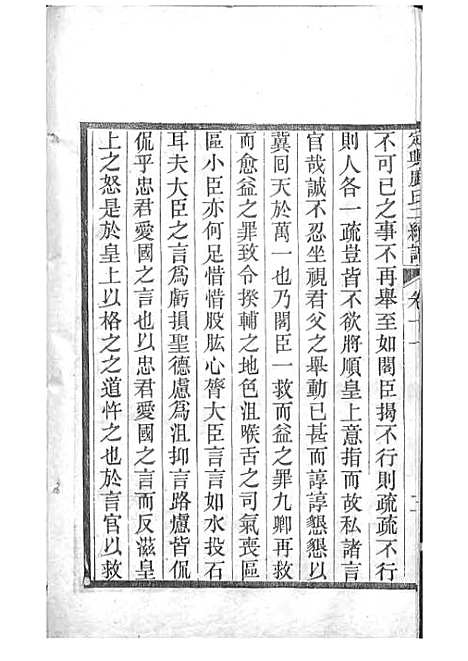 定興鹿氏二續譜 卷十一
不可已之事不再舉至如閣臣揭不行則疏疏不行
則人各一疏豈皆不欲將順皇上意指而故私諸言
官哉誠不忍坐視君父之舉動已甚而諄諄懇懇以
冀囘天於萬一也乃閣臣一救而益之罪九卿再救
而愈益之罪致令揆輔之地色沮喉舌之司氣喪區
區小臣亦何足惜惜股肱心膂大臣言言如水投石
耳夫大臣之言為虧損聖德慮為沮抑言路慮皆侃
侃乎忠君愛國之言也以忠君愛國之言而反滋皇
上之怒是於皇上以格之之道忤之也於言官以救